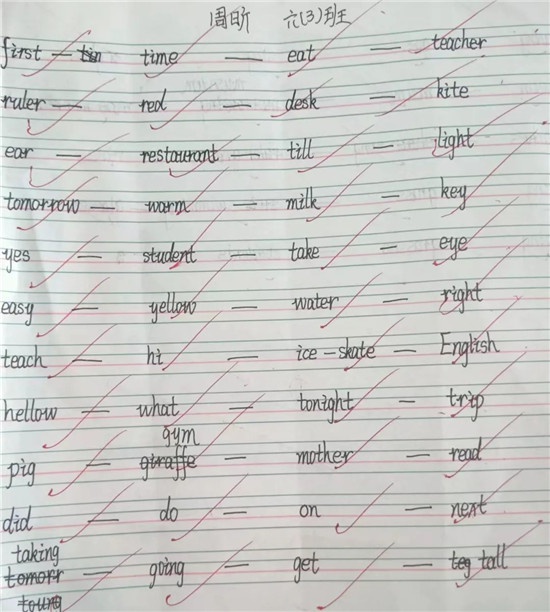 周昕 六(3)班
first — time — eat — teacher
ruler — red — desk — kite
ear — restaurant — till — light
tomorrow — warm — milk — key
yes — student — take — eye
easy — yellow — water — right
teach — hi — ice-skate — English
hellow — what — tonight — trip
gym
pig — giraffe — mother — read
did — do — on — next
taking
tomorr — going — get — teg tall